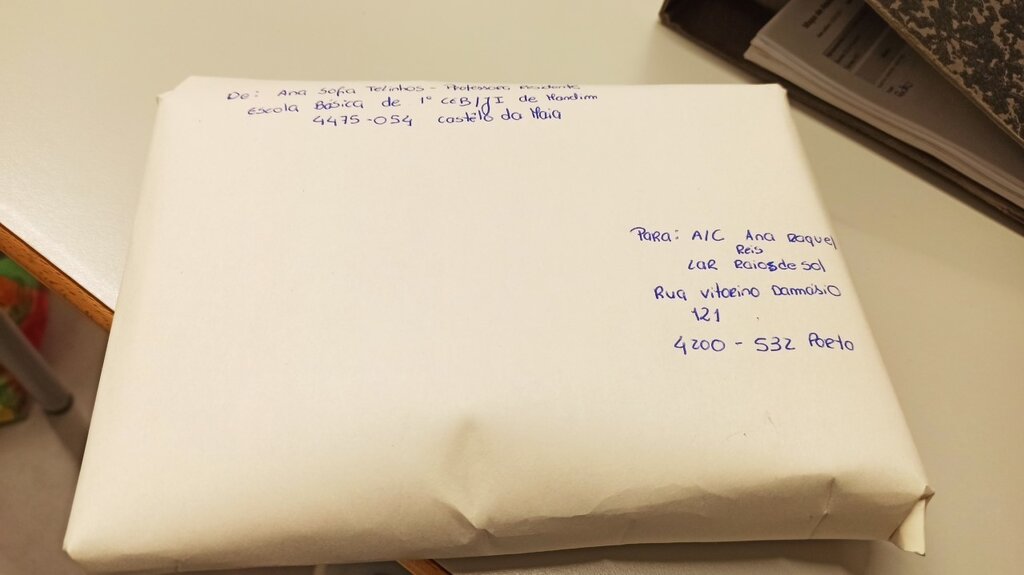 De: Ana Sofia Telinhos - Professora Residente
Escola Básica de 1º CEB/JI de Mandim
4475-054 Castêlo da Maia
Para: A/C Ana Raquel
Reis
LAR Raios de Sol
Rua Vitorino Damásio
121
4200 - 532 Porto